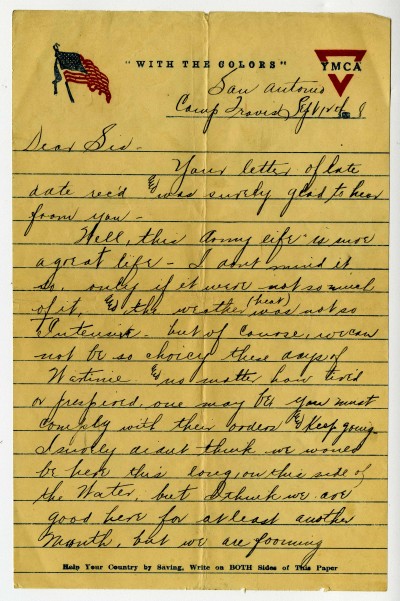 "WITH THE COLORS"
YMCA
San Antonio
Camp Travis Sept 12th 8
Dear Sis -
Your letter of late
date rec'd & was surely glad to hear
from you -
Well, this Army life is sure
a great life - I dont mind it
so, only if it were not so much
of it, & the weather (heat) was not so
Intensive - but of course, we can
not be so choicy these days of
Wartime & no matter how tired
or prespired one may be, you must
comply with their orders & Keep going -
I surely didn't think we would
be here this long, on this side of
the Water, but I think we are
good here for at least another
Month, but we are forming
Help Your Country by Saving, Write on BOTH Sides of This Paper